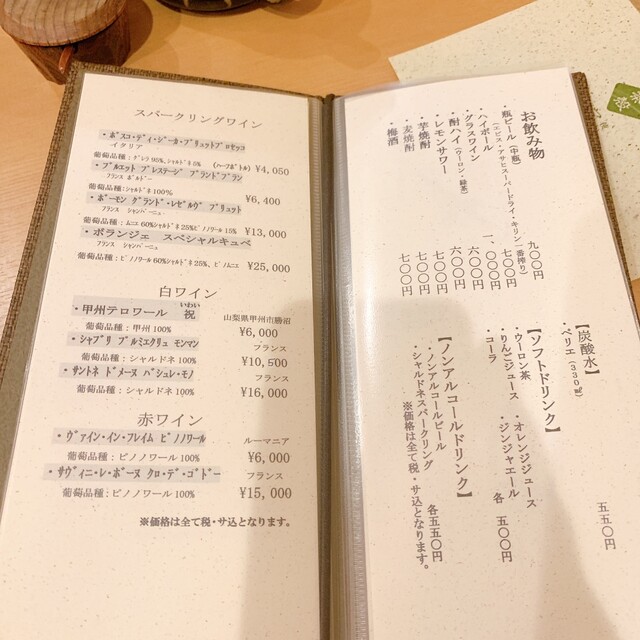 スパークリングワイン
・ボスコ・ディ・ジーカ・ブリュットプロセッコ
イタリア
葡萄品種：グレラ 95%、シャルドネ5% (ハーフボトル) ¥4,050
・ブルエット プレステージ ブランドブラン
フランス ボルドー
葡萄品種:シャルドネ100% ¥6,400
・ボーモン グランド・レゼルヴ ブリュット
フランス シャンパーニュ
葡萄品種：ムニエ 60%シャルドネ 25%ピノノワール 15% ¥13,000
・ボランジェ スペシャルキュベ
フランス シャンパーニュ
葡萄品種：ピノノワール60%シャルドネ25%、ピノムニエ ¥25,000
白ワイン
・甲州テロワール 祝 いわい 山梨県甲州市勝沼
葡萄品種：甲州 100% ¥6,000
・シャブリ プルミエクリュ モンマン フランス
葡萄品種：シャルドネ 100% ¥10,500
・サントネ ドメーヌ バシュレ・モノ フランス
葡萄品種：シャルドネ 100% ¥16,000
赤ワイン
・ヴァイン・イン・フレイム ピノノワール ルーマニア
葡萄品種：ピノノワール 100% ¥6,000
・サヴィニ・レ・ボーヌ クロ・デ・ゴドー フランス
葡萄品種：ピノノワール 100% ¥15,000
※価格は全て税・サ込となります。
お飲み物
・瓶ビール（中瓶） 九〇〇円
（エビス・アサヒスーパードライ・キリン一番搾り）
・ハイボール 七〇〇円
・グラスワイン 一、〇〇〇円
・酎ハイ（ウーロン・緑茶） 六〇〇円
・レモンサワー 六〇〇円
・芋焼酎 七〇〇円
・麦焼酎 七〇〇円
・梅酒 七〇〇円
【炭酸水】
・ペリエ（330㎖） 五五〇円
【ソフトドリンク】
・ウーロン茶 ・オレンジジュース
・りんごジュース ・ジンジャエール
・コーラ 各 五〇〇円
【ノンアルコールドリンク】
・ノンアルコールビール
・シャルドネスパークリング 各五五〇円
※価格は全て税・サ込となります。